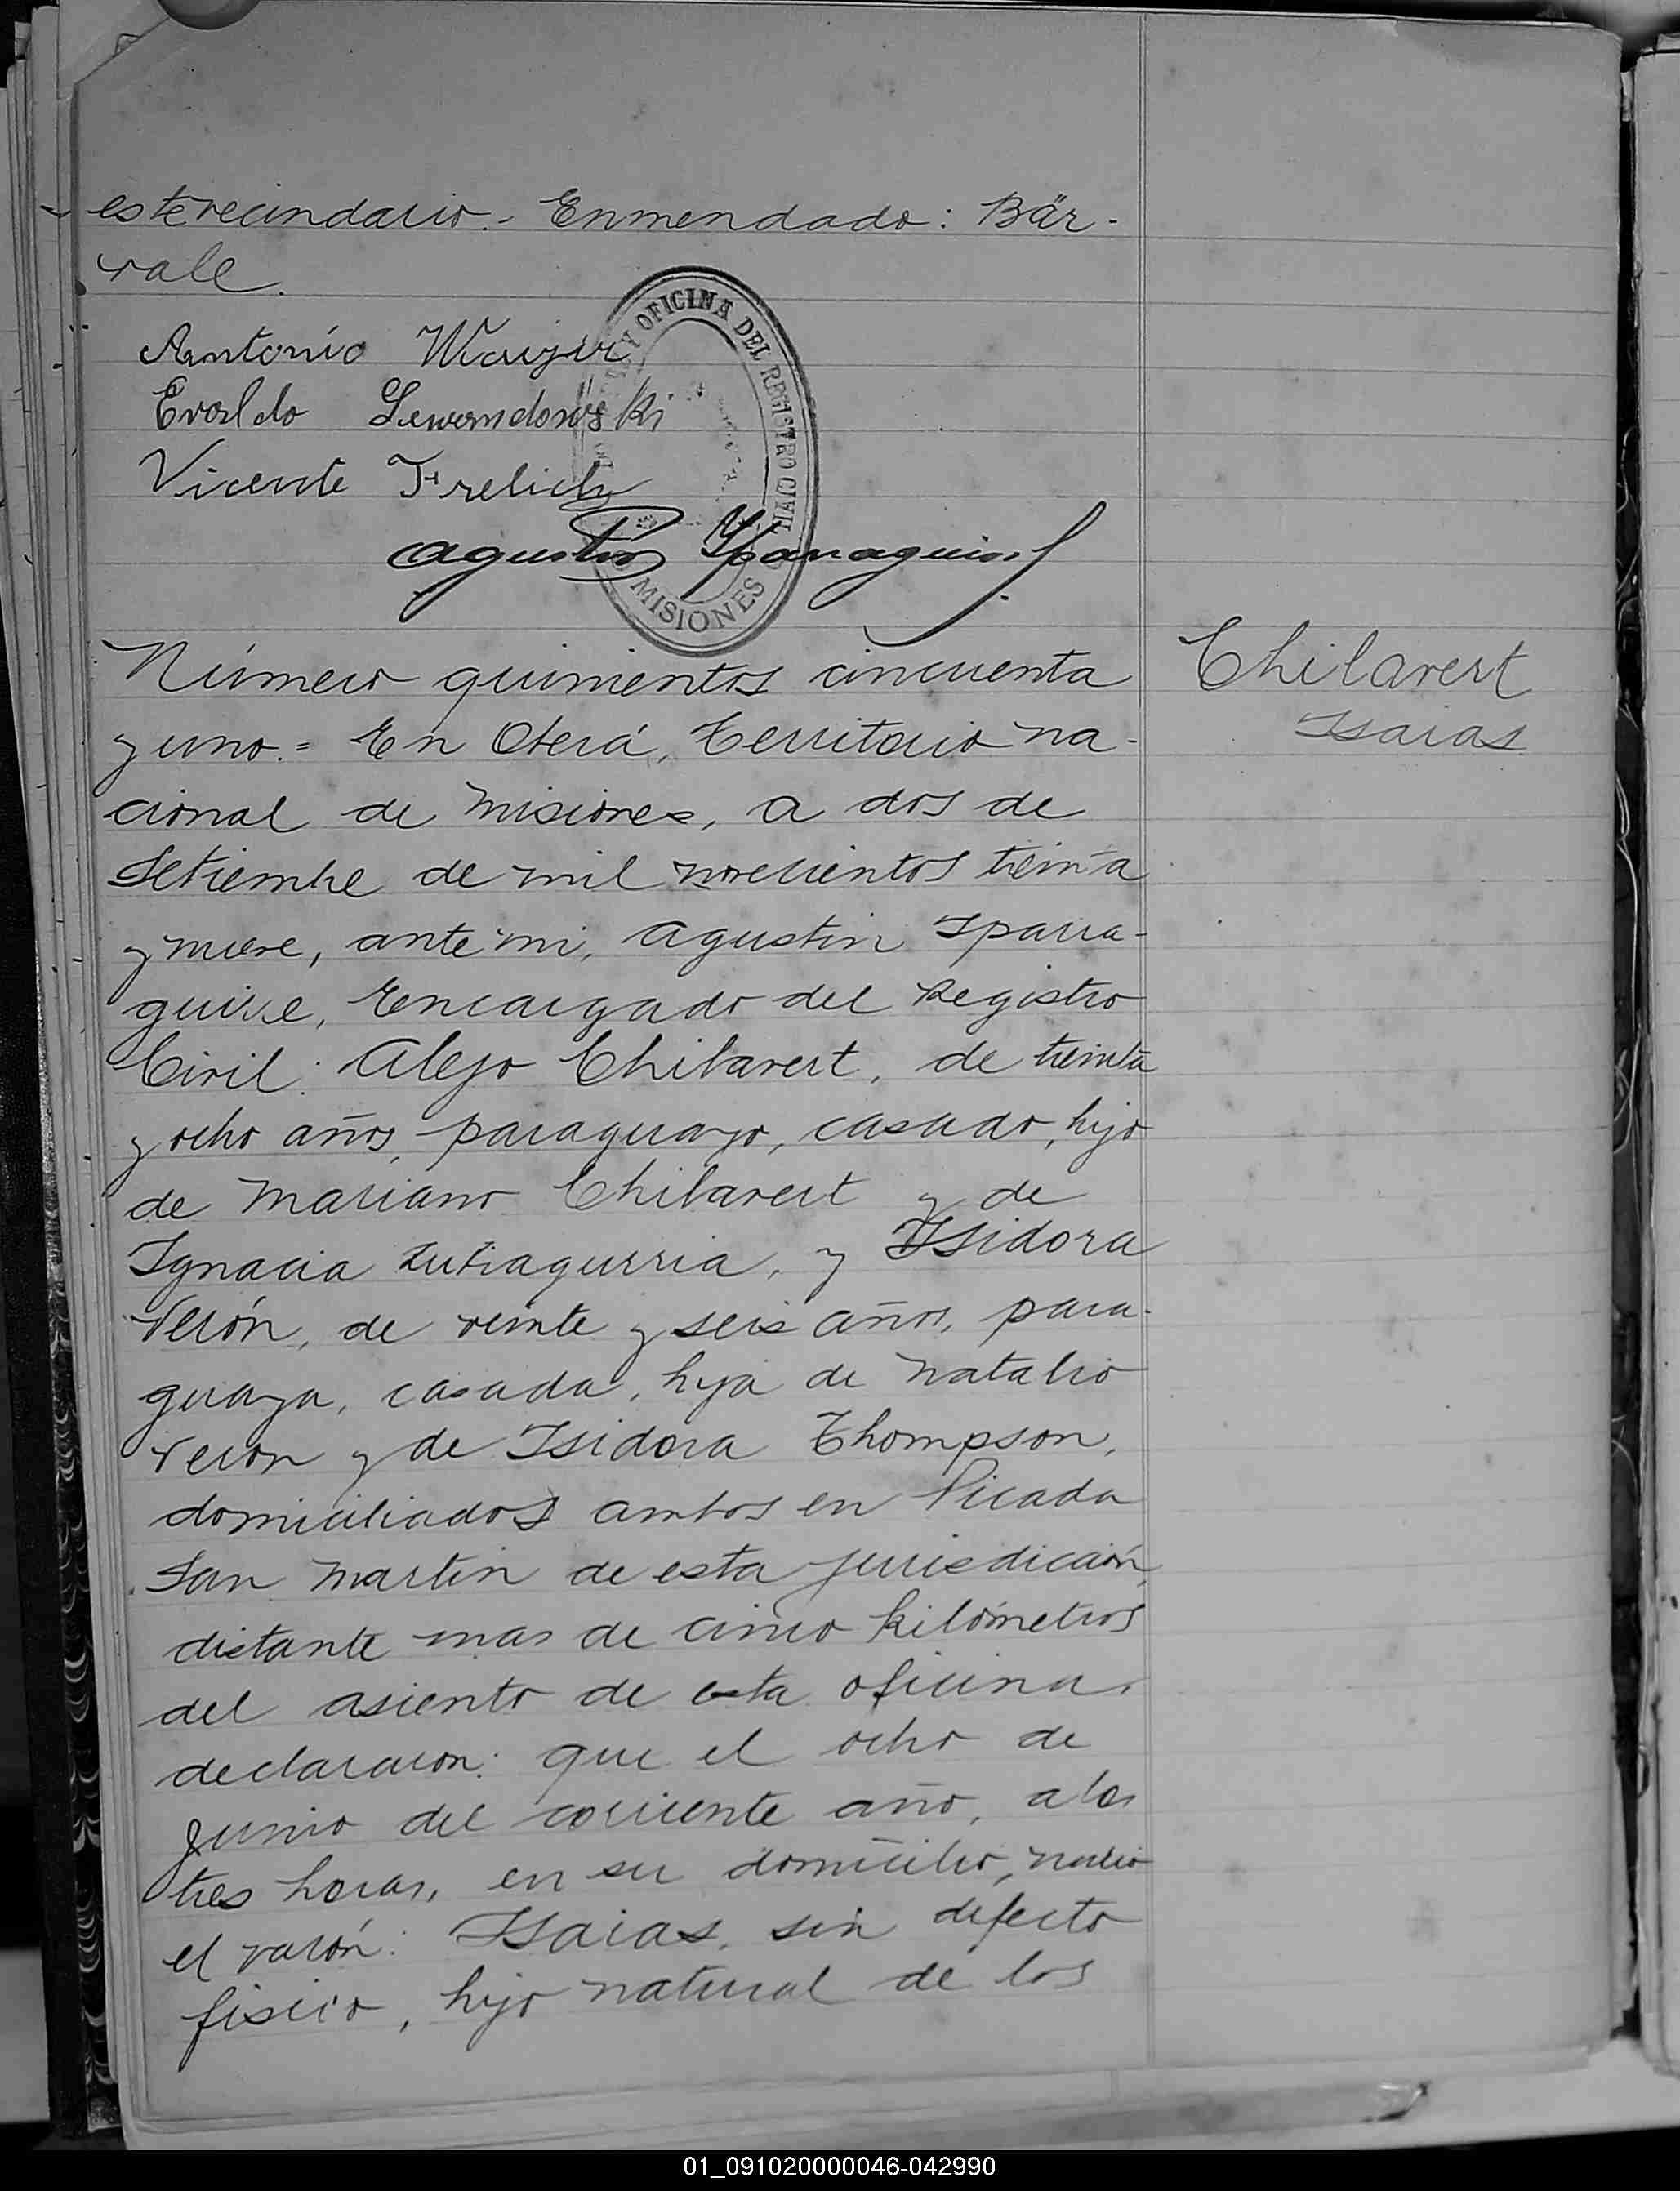 este vecindario.- Enmendado: Bär-
vale.
Antonio
Evaldo Lewandowski
Vicente Frelich
OFICINA DEL REGISTRO CIVIL
MISIONES
Agustín Yparraguirre
Número quinientos cincuenta
y uno.= En Oberá, Territorio na-
cional de Misiones, a dos de
Setiembre de mil novecientos treinta
y nueve, ante mi, Agustin Iparra-
guirre, Encargado del Registro
Civil: Alejo Chilavert, de treinta
y ocho años, paraguayo, casado, hijo
de Mariano Chilavert y de
Ignacia, y Isidora
Verón, de veinte y seis años, para-
guaya, casada, hija de Natalio
Veron y de Isidora Thompson,
domiciliados ambos en Picada
San Martin de esta jurisdicción,
distante mas de cinco kilómetros
del asiento de esta oficina,
declararon: que el ocho de
Junio del corriente año, a las
tres horas, en su domicilio, nació
el varón: Isaias, sin defecto
fisico, hijo natural de los
Chilavert
Isaias
01_091020000046-042990